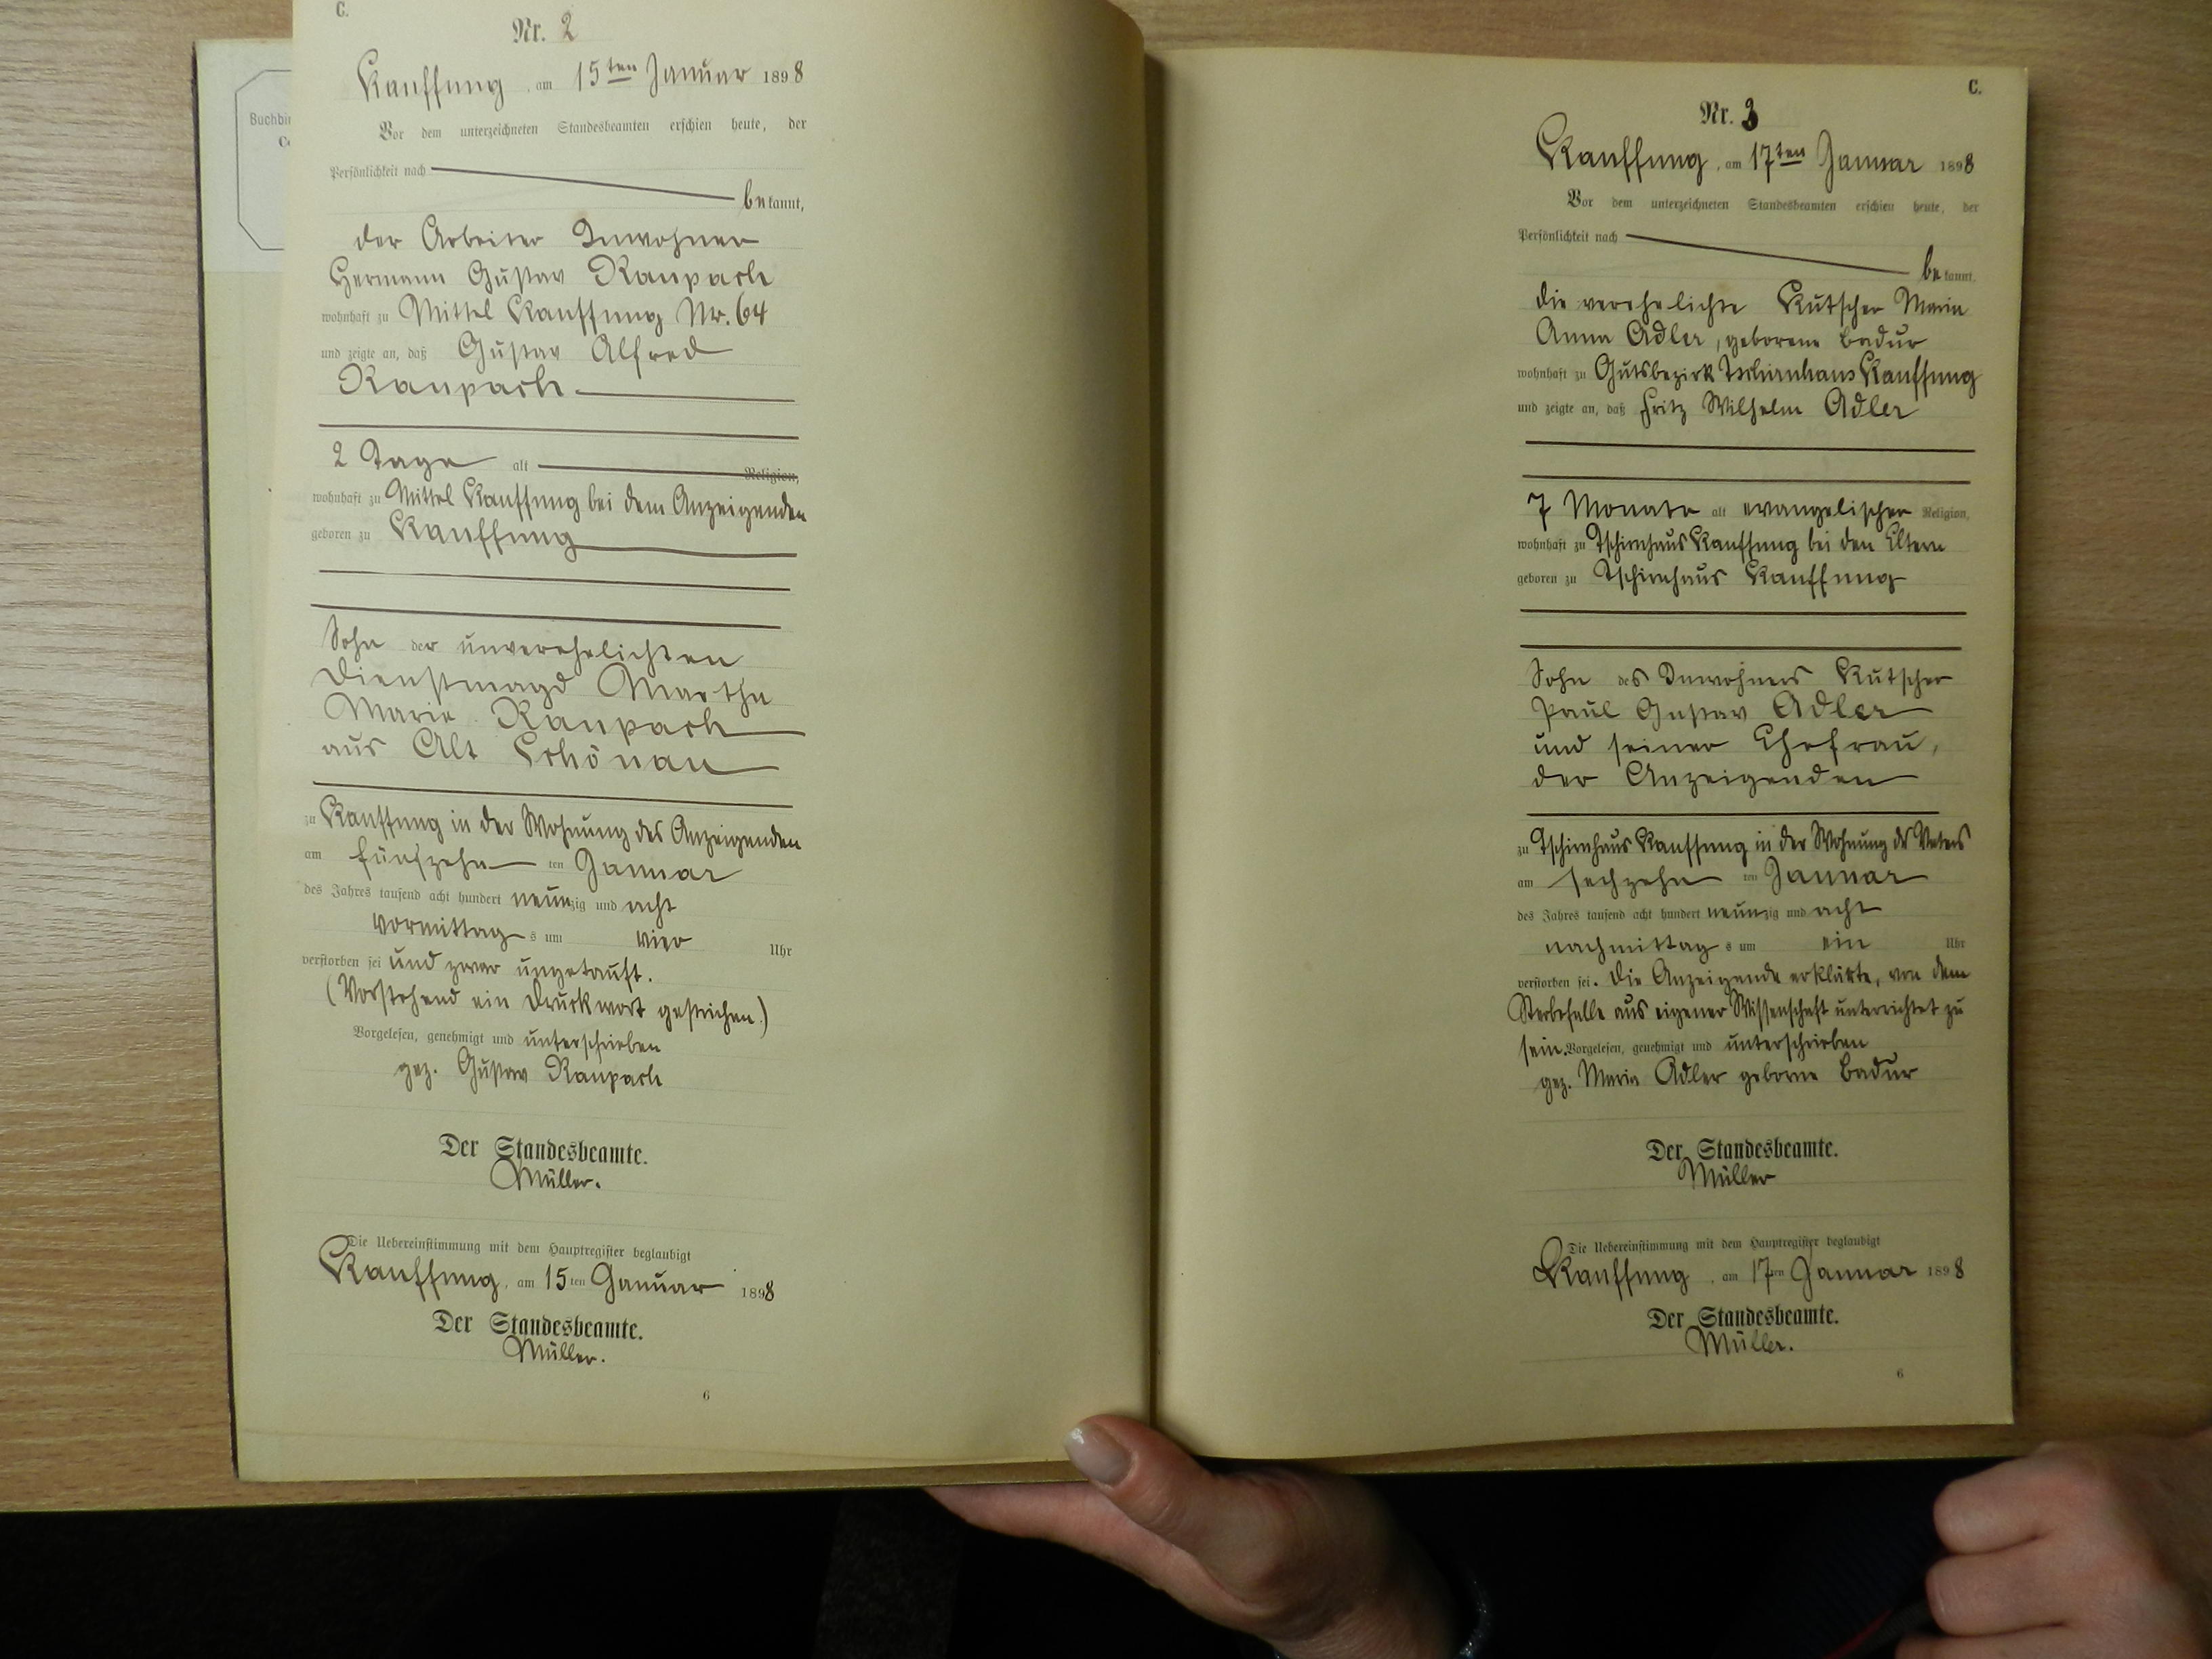 Buchbin
C.
Nr. 2
Kauffung, am 15ten Januar 1898
Vor dem unterzeichneten Standesbeamten erschien heute, der
Persönlichkeit nach
bekannt,
der Arbeiter Inwohner
Hermann Gustav Raupach
wohnhaft zu Mittel Kauffung Nr. 64
und zeigte an, daß Gustav Alfred
Raupach
2 Tage alt Religion,
wohnhaft zu Mittel Kauffung bei dem Anzeigenden
geboren zu Kauffung
Sohn der unverehelichten
Dienstmagd Martha
Marie Raupach
aus Alt Schönau
zu Kauffung in der Wohnung des Anzeigenden
am fünfzehn ten Januar
des Jahres tausend acht hundert neunzig und acht
vormittags um vier Uhr
verstorben sei und zwar ungetauft.
(Vorstehend ein Druckwort gestrichen.)
Vorgelesen, genehmigt und unterschrieben
gez. Gustav Raupach
Der Standesbeamte.
Müller.
Die Uebereinstimmung mit dem Hauptregister beglaubigt
Kauffung, am 15ten Januar 1898
Der Standesbeamte.
Müller.
6
C.
Nr. 3
Kauffung, am 17ten Januar 1898
Vor dem unterzeichneten Standesbeamten erschien heute, der
Persönlichkeit nach
bekannt,
die verehelichte Kutscher Maria
Anna Adler, geborene Badur
wohnhaft zu Gutsbezirk Tschirnhaus Kauffung
und zeigte an, daß Fritz Wilhelm Adler
7 Monate alt evangelischer Religion,
wohnhaft zu Tschirnhaus Kauffung bei den Eltern
geboren zu Tschirnhaus Kauffung
Sohn des Inwohners Kutscher
Paul Gustav Adler
und seiner Ehefrau,
der Anzeigenden
zu Tschirnhaus Kauffung in der Wohnung des Vaters
am sechzehn ten Januar
des Jahres tausend acht hundert neunzig und acht
nachmittags um ein Uhr
verstorben sei. Die Anzeigende erklärte, von dem
Sterbefalle aus eigener Wissenschaft unterrichtet zu
sein. Vorgelesen, genehmigt und unterschrieben
gez. Maria Adler geborne Badur
Der Standesbeamte.
Müller
Die Uebereinstimmung mit dem Hauptregister beglaubigt
Kauffung, am 17ten Januar 1898
Der Standesbeamte.
Müller.
6